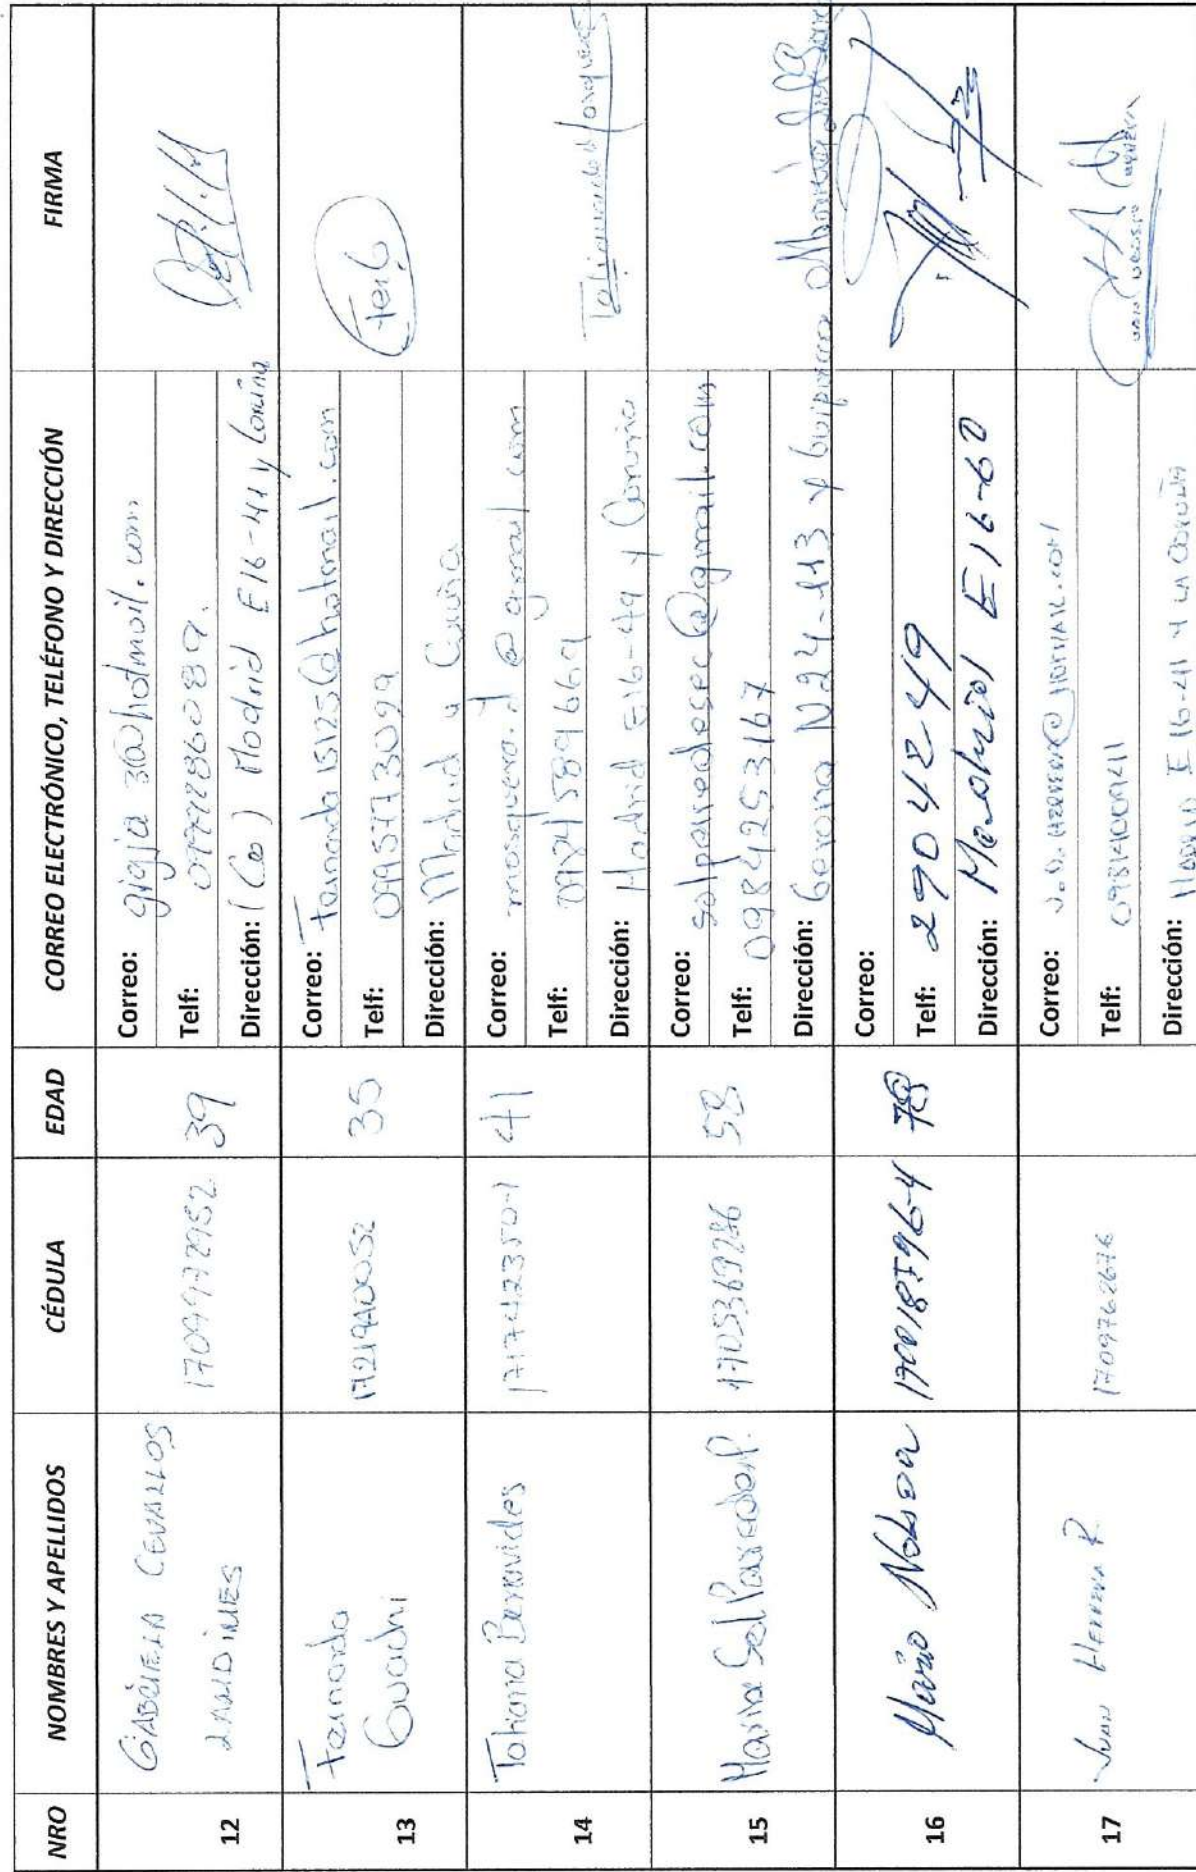 NRO NOMBRES Y APELLIDOS CÉDULA EDAD CORREO ELECTRÓNICO, TELÉFONO Y DIRECCIÓN FIRMA
12
GABRIELA CEVALLOS
LANDINES
1709972952
39
Correo: gigja3@hotmail.com
Telf: 099286089
Dirección: (Co) Madrid E16-41 y Coruña
13
Fernanda
Guachi
1721940052
35
Correo: Fernanda15125@hotmail.com
Telf: 0995773099
Dirección: Madrid y Coruña
FerG
14
Tatiana Benavides
171742350-1
41
Correo: mosquero.d@gmail.com
Telf: 0984589669
Dirección: Madrid E16-49 y Coruña
15
Maria Sol Paredes P.
1705369286
58
Correo: solparedesec@gmail.com
Telf: 0984253167
Dirección: Gerona N24-113 y Guipuzcoa
16
Mario
170018796-4
78
Correo:
Telf: 2904249
Dirección: Madrid E16-60
17
JUAN HERRERA R.
1709762676
Correo:
Telf: 0981400941
Dirección: MADRID E16-41 Y LA CORUÑA